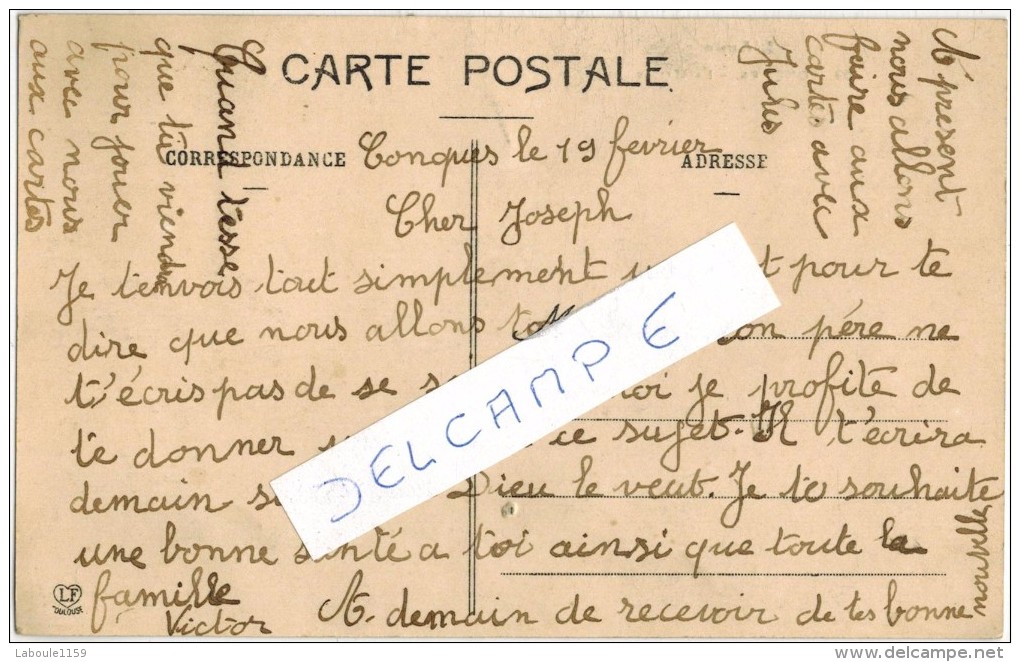 CARTE POSTALE
CORRESPONDANCE
ADRESSE
Conques le 19 fevrier
Cher Joseph
Je t'envois tout simplement pour te
dire que nous allons père ne
t'écris pas de se je profite de
te donner ce sujet. Il t'écrira
demain si Dieu le veut. Je te souhaite
une bonne santé a toi ainsi que toute la
famille
Victor
A demain de recevoir de tes bonne
nouvelles
Quand
que tu
pour jouer
avec nous
aux cartes
A présent
nous allons
faire aux
cartes avec
Jules
DELCAMPE
LF
TOULOUSE
Laboule1159
delcampe.net